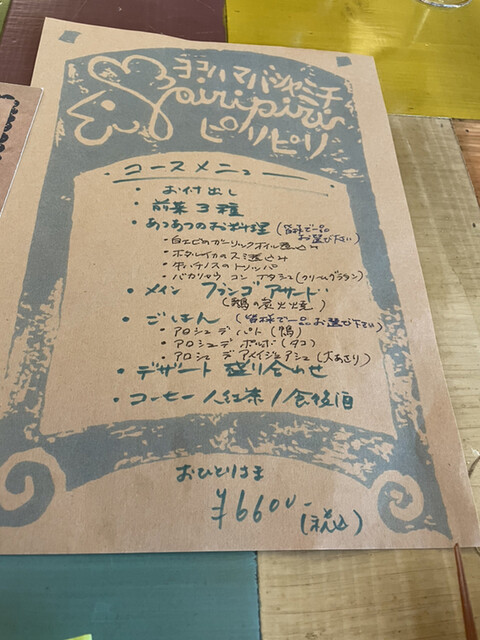 ヨコハマバシャミチ
Piripiri
ピリピリ
・コースメニュー
・お付出し
・前菜3種
・あつあつのお料理(皆様で一品お選び下さい)
・白エビのガーリックオイル煮込み
・ホタルイカのスミ煮込み
・牛ハチノスのトリッパ
・バカリャウ コン ナタシュ(クリームグラタン)
・メイン フランゴ アサード
(鶏の炭火焼)
・ごはん(皆様で一品お選び下さい)
・アロシュ デ パト(鴨)
・アロシュ デ ポルボ(タコ)
・アロシュ デ アメイジュアシュ(大あさり)
・デザート盛り合わせ
・コーヒー/紅茶/食後酒
おひとりさま
¥6600-
(税込)